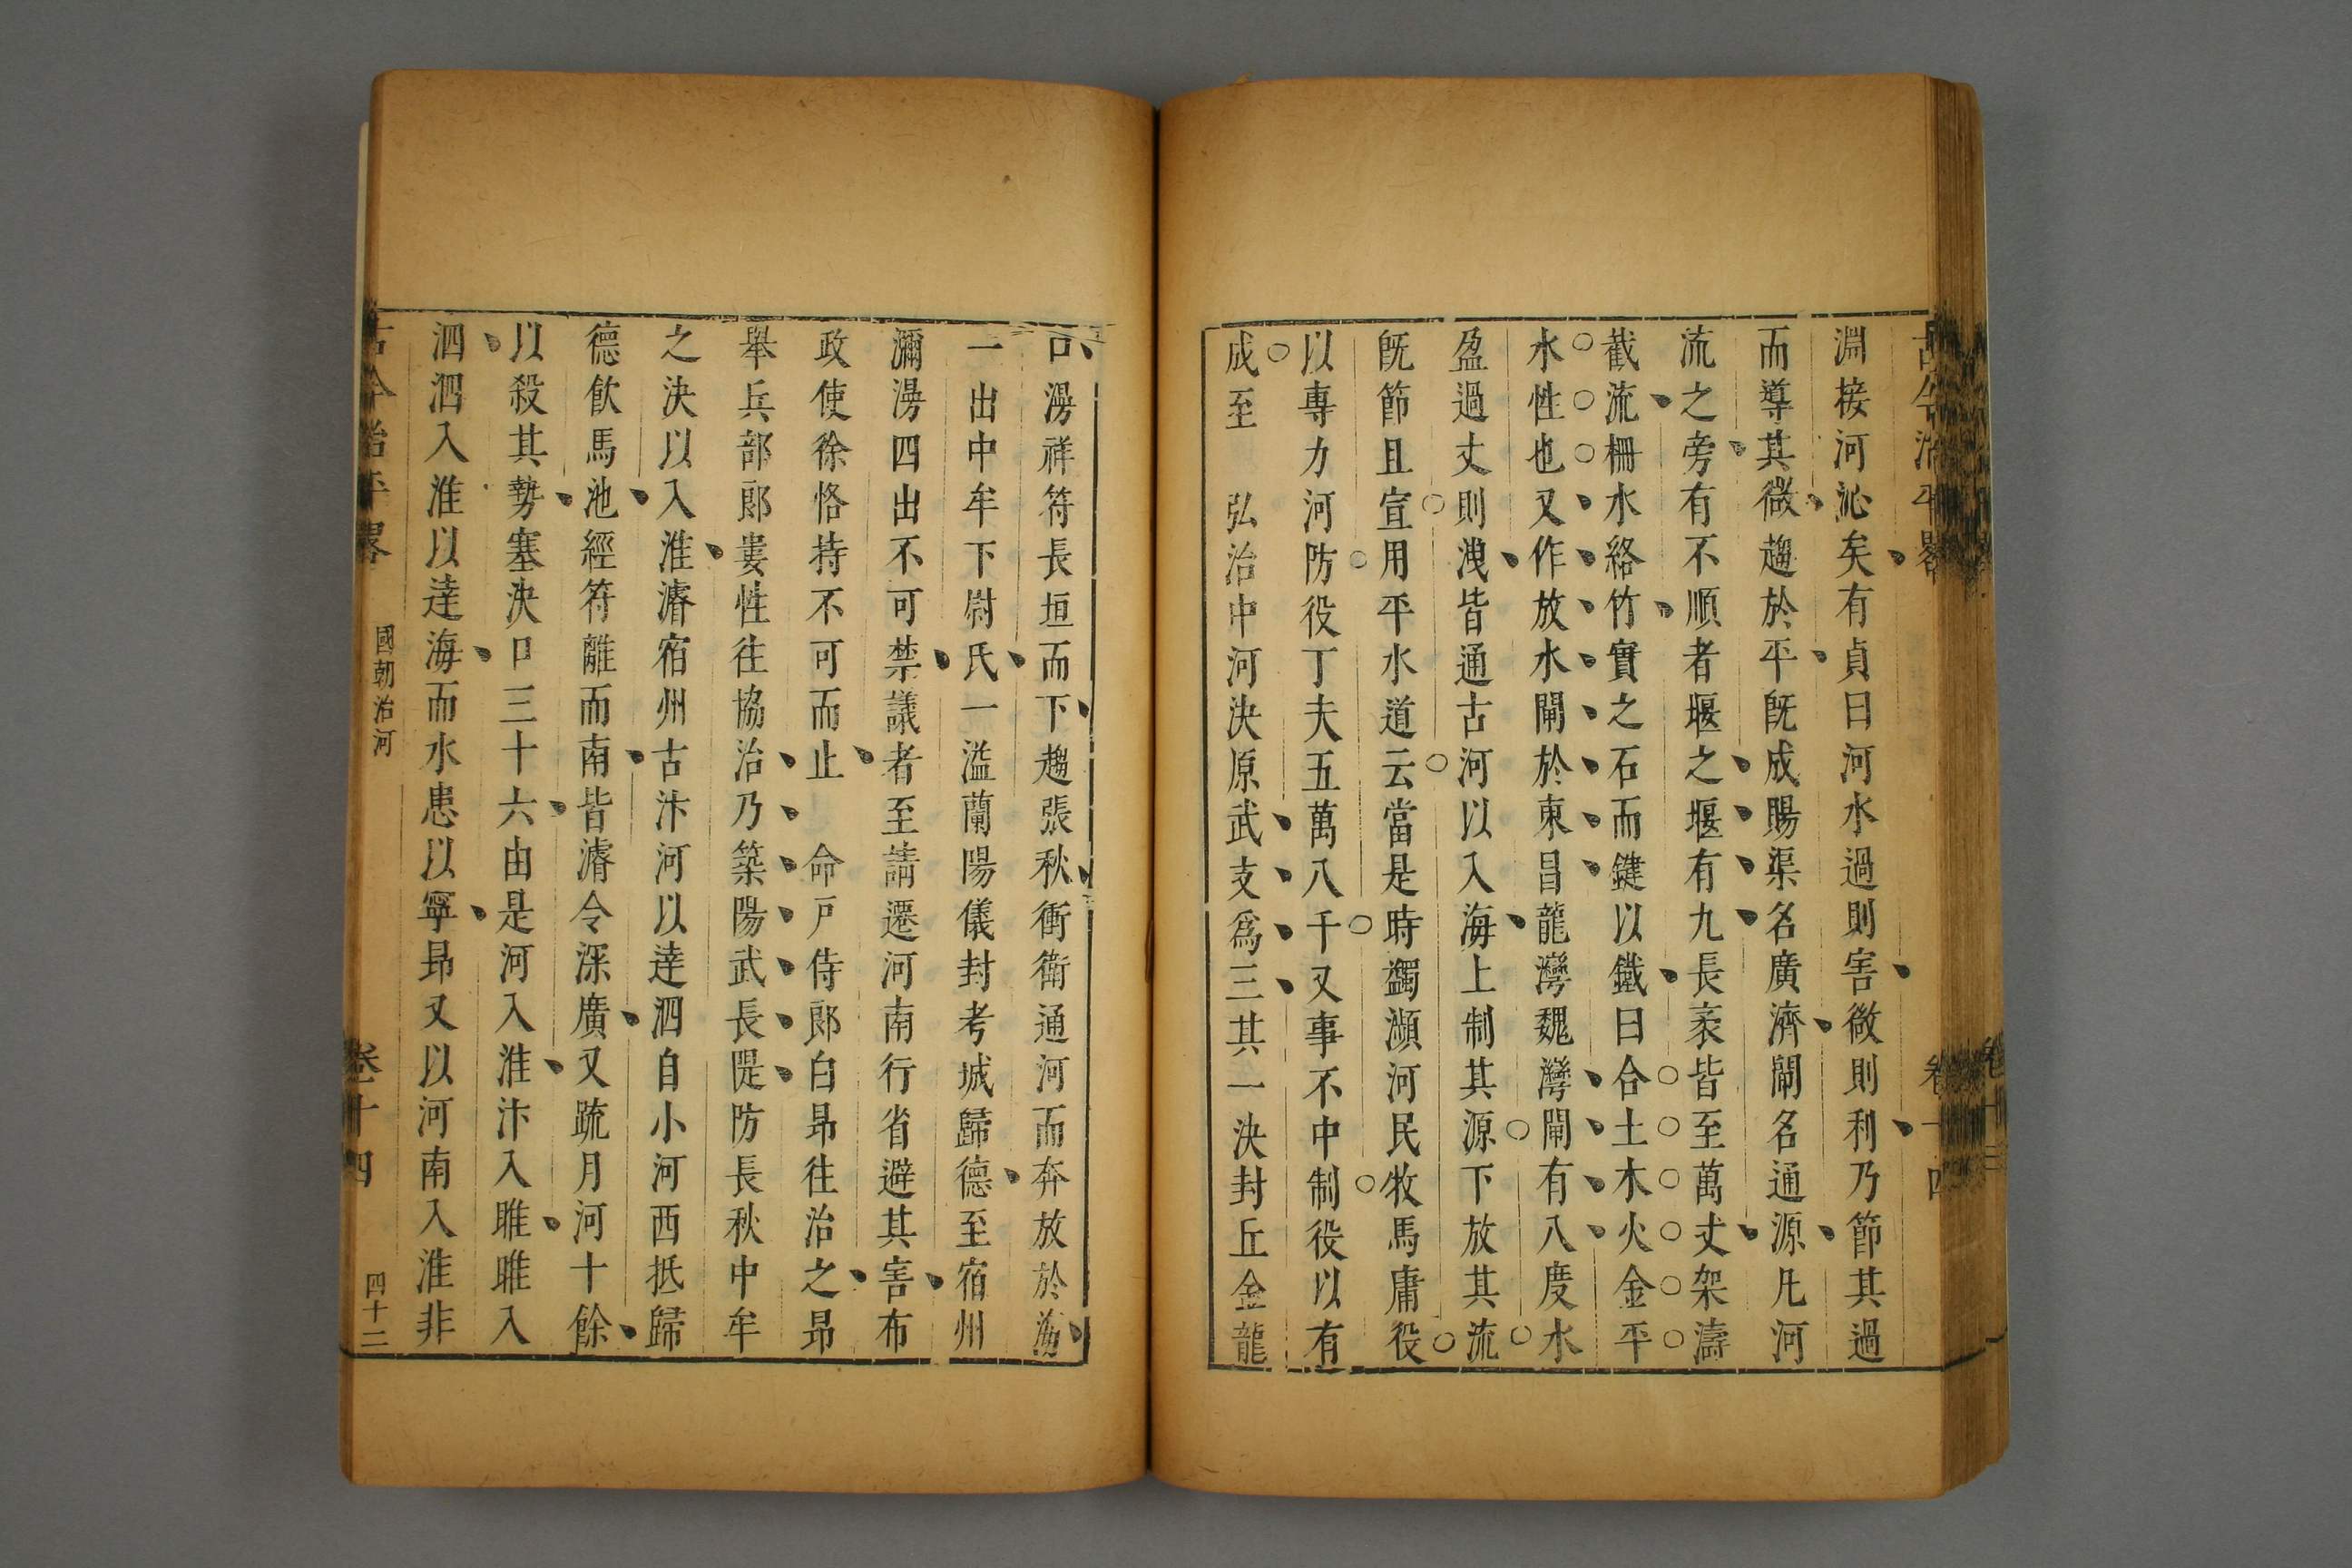 古今治平畧 卷十四
淵接河沁矣有貞曰河水過則害微則利乃節其過
而導其微趨於平既成賜渠名廣濟閘名通源凡河
流之旁有不順者堰之堰有九長袤皆至萬丈架濤
截流柵水絡竹實之石而鍵以鐵曰合土木火金平
水性也又作放水閘於東昌龍灣魏灣閘有八度水
盈過丈則洩皆通古河以入海上制其源下放其流
既節且宣用平水道云當是時蠲瀕河民牧馬庸役
以專力河防役丁夫五萬八千又事不中制役以有
成至 弘治中河決原武支爲三其一決封丘金龍
口漫祥符長垣而下趨張秋衝衛通河而奔放於海
一出中牟下尉氏一溢蘭陽儀封考城歸德至宿州
瀰漫四出不可禁議者至請遷河南行省避其害布
政使徐恪持不可而止 命戸侍郎白昻往治之昻
舉兵部郎婁性往協治乃築陽武長隄防長秋中牟
之決以入淮濬宿州古汴河以達泗自小河西抵歸
德飲馬池經符離而南皆濬令深廣又疏月河十餘
以殺其勢塞決口三十六由是河入淮汴入睢睢入
泗泗入淮以達海而水患以寧昻又以河南入淮非
古今治平畧 國朝治河 卷十四 四十二